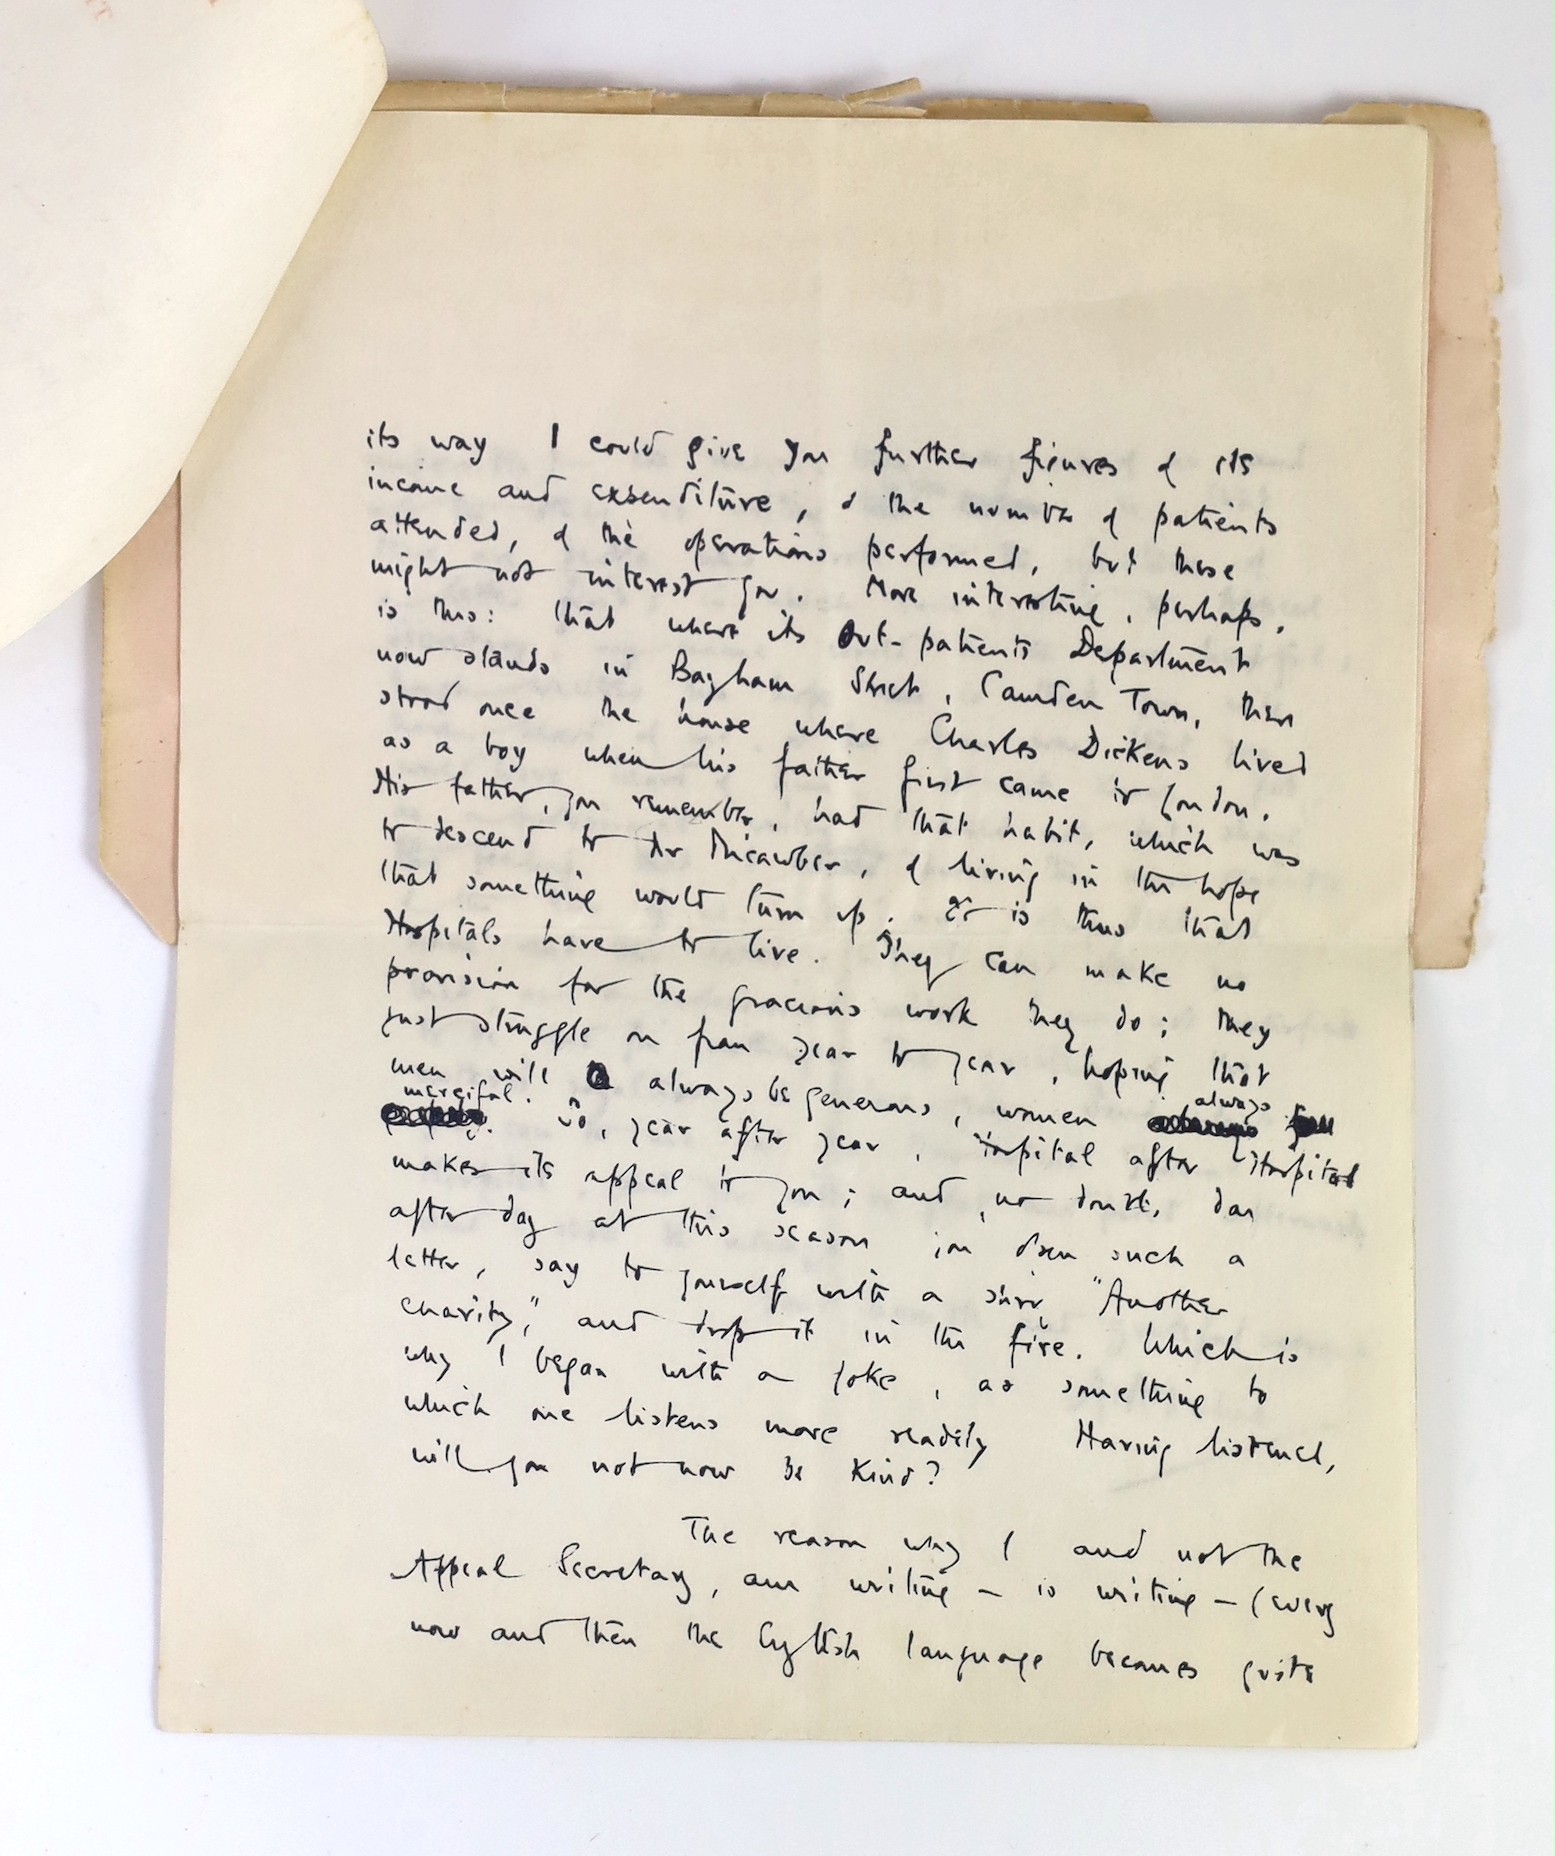 its way I could give you further figures of its
income and expenditure, of the number of patients
attended, of the operations performed, but these
might not interest you. More interesting, perhaps,
is this: that where its Out-patients Department
now stands in Bayham Street, Camden Town, there
stood once the house where Charles Dickens lived
as a boy when his father first came to London.
His father, you remember, had that habit, which was
to descend to Mr Micawber, of living in the hope
that something would turn up. It is thus that
Hospitals have to live. They can make no
provision for the gracious work they do; they
just struggle on from year to year, hoping that
men will always be generous, women always
merciful. So, year after year, Hospital after Hospital
makes its appeal to you; and, no doubt, day
after day at this season you open such a
letter, say to yourself with a sigh "Another
charity," and drop it in the fire. Which is
why I began with a joke, as something to
which one listens more readily Having listened,
will you not now be kind?
The reason why I and not the
Appeal Secretary, am writing - is writing - (every
now and then the English language becomes quite